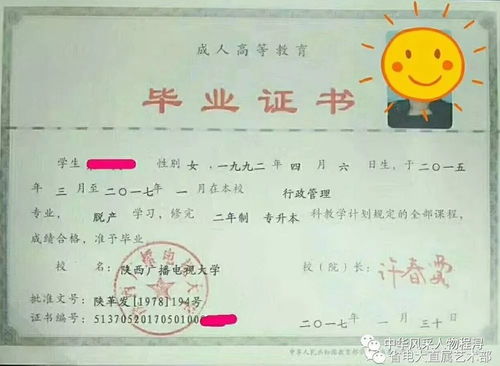 成人高等教育
毕业证书
学生 性别 女，一九九二年 四 月 六 日生，于二〇一五
年 三 月至二〇一七年 一 月在本校 行政管理
专业， 脱产 学习，修完 二年制 专升本 科教学计划规定的全部课程，
成绩合格，准予毕业。
校 名：陕西广播电视大学 校（院）长：
批准文号：陕革发[1978]194号
证书编号：51370520170501006
二〇一七年 一 月 三十 日
中华风采人物程得
省电大直属艺术部